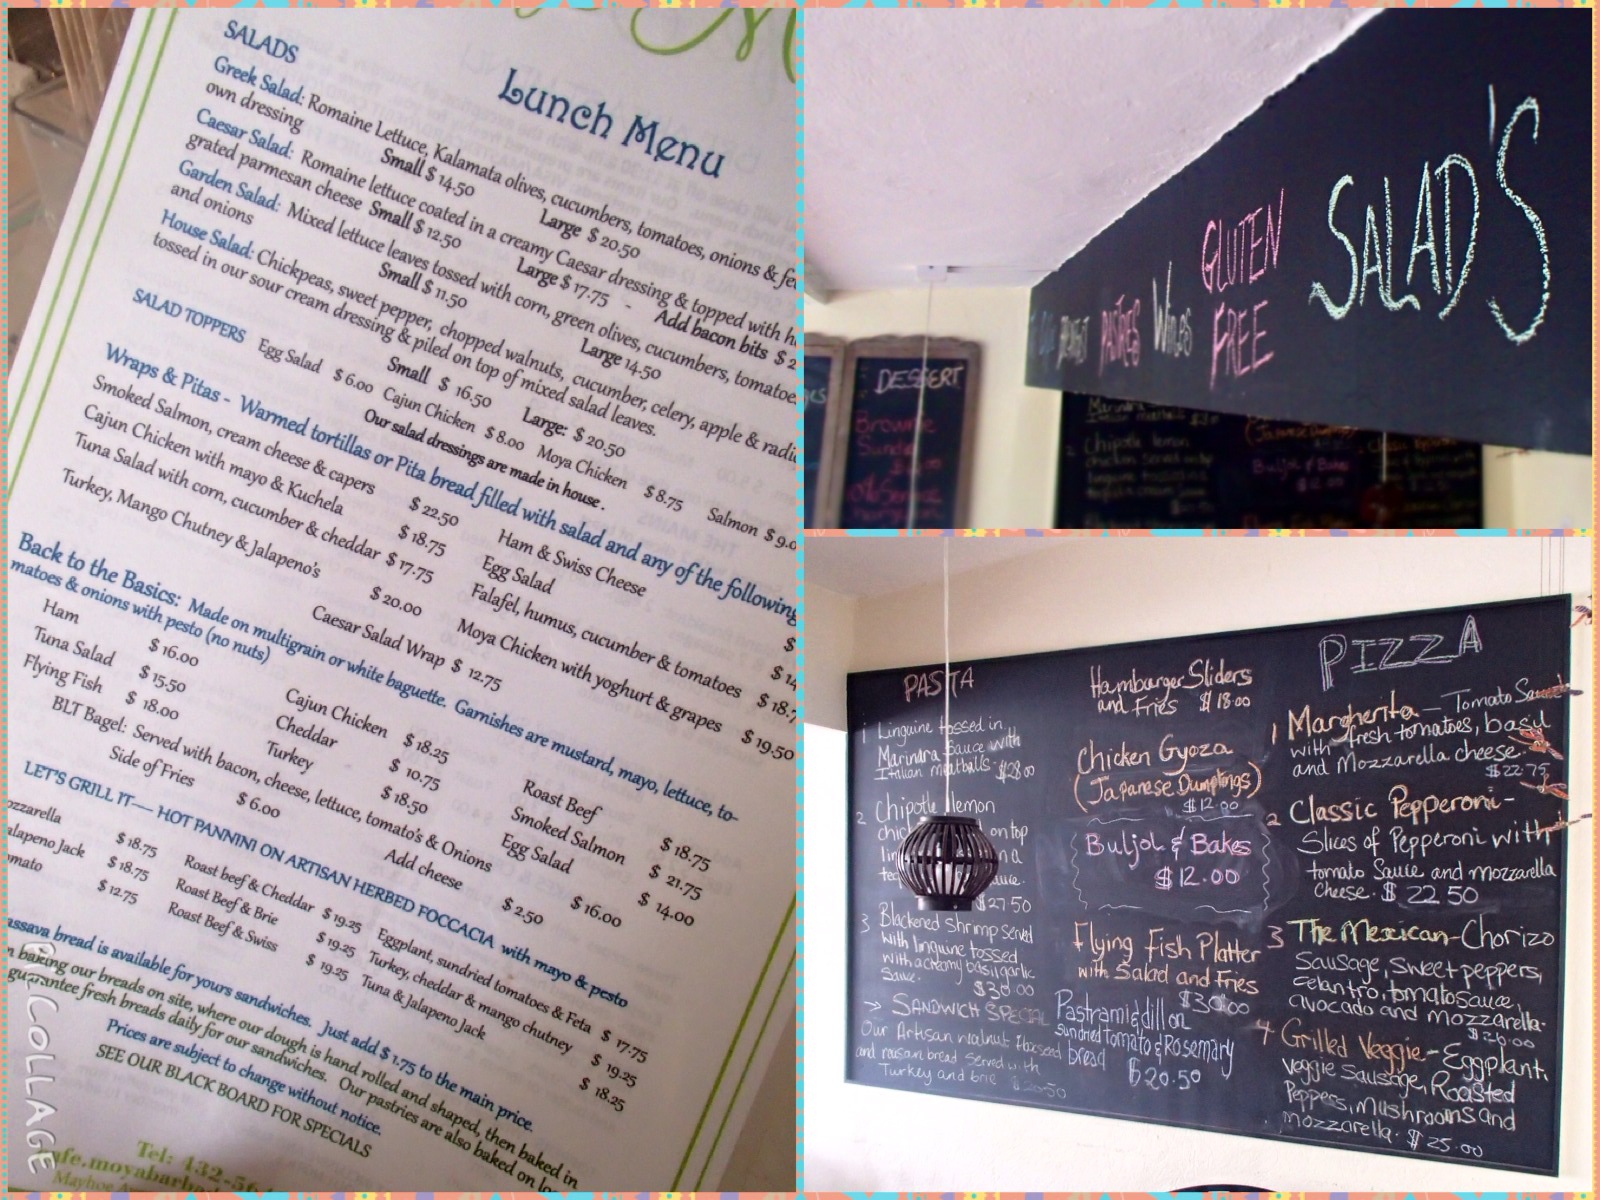 SALADS
Lunch Menu
Greek Salad: Romaine Lettuce, Kalamata olives, cucumbers, tomatoes, onions &
own dressing
Small $ 14.50 Large $ 20.50
Caesar Salad: Romaine lettuce coated in a creamy Caesar dressing & topped with
grated parmesan cheese Small $ 12.50 Large $ 17.75 - Add bacon bits $
Garden Salad: Mixed lettuce leaves tossed with corn, green olives, cucumbers,
and onions Small $ 11.50 Large 14.50
House Salad: Chickpeas, sweet pepper, chopped walnuts, cucumber, celery, apple &
tossed in our sour cream dressing & piled on top of mixed salad leaves.
Small $ 16.50 Large: $ 20.50
SALAD TOPPERS Egg Salad $ 6.00 Cajun Chicken $ 8.00 Moya Chicken $ 8.75 Salmon
Our salad dressings are made in house.
Wraps & Pitas - Warmed tortillas or Pita bread filled with salad and any of the following
Smoked Salmon, cream cheese & capers $ 22.50 Ham & Swiss Cheese
Cajun Chicken with mayo & Kuchela $ 18.75 Egg Salad
Tuna Salad with corn, cucumber & cheddar $ 17.75 Falafel, humus, cucumber & tomatoes
Turkey, Mango Chutney & Jalapeno's $ 20.00 Moya Chicken with yoghurt & grapes $ 19.50
Caesar Salad Wrap $ 12.75
Back to the Basics: Made on multigrain or white baguette. Garnishes are mustard, mayo, lettuce, to-
matoes & onions with pesto (no nuts)
Ham $ 16.00 Cajun Chicken $ 18.25 Roast Beef $ 18.75
Tuna Salad $ 15.50 Cheddar $ 10.75 Smoked Salmon $ 21.75
Flying Fish $ 18.00 Turkey $ 18.50 Egg Salad $ 14.00
BLT Bagel: Served with bacon, cheese, lettuce, tomato's & Onions $ 16.00
Side of Fries $ 6.00 Add cheese $ 2.50
LET'S GRILL IT— HOT PANNINI ON ARTISAN HERBED FOCCACIA with mayo & pesto
$ 18.75 Roast beef & Cheddar $ 19.25 Eggplant, sundried tomatoes & Feta $ 17.75
Jack $ 18.75 Roast Beef & Brie $ 19.25 Turkey, cheddar & mango chutney $ 19.25
$ 12.75 Roast Beef & Swiss $ 19.25 Tuna & Jalapeno Jack $ 18.25
bread is available for yours sandwiches. Just add $ 1.75 to the main price.
baking our breads on site, where our dough is hand rolled and shaped, then baked in
guarantee fresh breads daily for our sandwiches. Our pastries are also baked on
Prices are subject to change without notice.
SEE OUR BLACK BOARD FOR SPECIALS
Tel: 432-56
PIC COLLAGE
PASTRIES WINGS GLUTEN FREE SALAD'S
DESSERT
Brownie
Chipotle lemon
Buljol & Bakes
PASTA
1 Linguine tossed in
Marinara Sauce with
Italian meatballs. $28.00
2 Chipotle lemon
on top
$27.50
3 Blackened Shrimp served
with linguine tossed
with a creamy basil garlic
Sauce. $30.00
→ SANDWICH SPECIAL
Our Artisan walnut flaxseed
and raisan bread served with
Turkey and brie $20.50
Hamburger Sliders
and Fries $18.00
Chicken Gyoza
(Japanese Dumplings)
$12.00
Buljol & Bakes
$12.00
Flying Fish Platter
with Salad and Fries
$30.00
Pastrami & dill on
sundried Tomato & Rosemary
bread $20.50
PIZZA
1 Margherita — Tomato Sauce
with fresh tomatoes, basil
and Mozzarella cheese.
$22.75
2 Classic Pepperoni-
Slices of Pepperoni with
tomato Sauce and mozzarella
cheese. $22.50
3 The Mexican-Chorizo
Sausage, sweet peppers,
celantro, tomato sauce,
avocado and mozzarella.
$26.00
4 Grilled Veggie-Eggplant,
veggie Sausage, Roasted
Peppers, Mushrooms and
mozzarella. $25.00